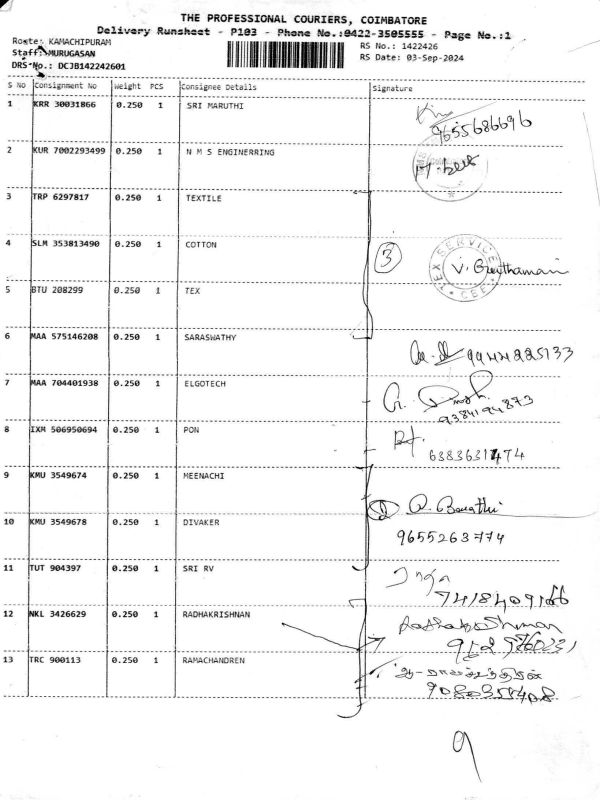 THE PROFESSIONAL COURIERS, COIMBATORE
Delivery Runsheet - P103 - Phone No.:0422-3505555 - Page No.:1
Route: KAMACHIPURAM
RS No.: 1422426
Staff: MURUGASAN
RS Date: 03-Sep-2024
DRS No.: DCJB142242601
S No Consignment No Weight PCS Consignee Details Signature
1 KRR 30031866 0.250 1 SRI MARUTHI
9655686696
2 KUR 7002293499 0.250 1 N M S ENGINERRING
3 TRP 6297817 0.250 1 TEXTILE
4 SLM 353813490 0.250 1 COTTON
3
TEX SERVICE
CBE
5 BTU 208299 0.250 1 TEX
6 MAA 575146208 0.250 1 SARASWATHY
9944225133
7 MAA 704401938 0.250 1 ELGOTECH
9384194873
8 IXM 506950694 0.250 1 PON
6383631474
9 KMU 3549674 0.250 1 MEENACHI
10 KMU 3549678 0.250 1 DIVAKER
9655263774
11 TUT 904397 0.250 1 SRI RV
12 NKL 3426629 0.250 1 RADHAKRISHNAN
13 TRC 900113 0.250 1 RAMACHANDREN
9